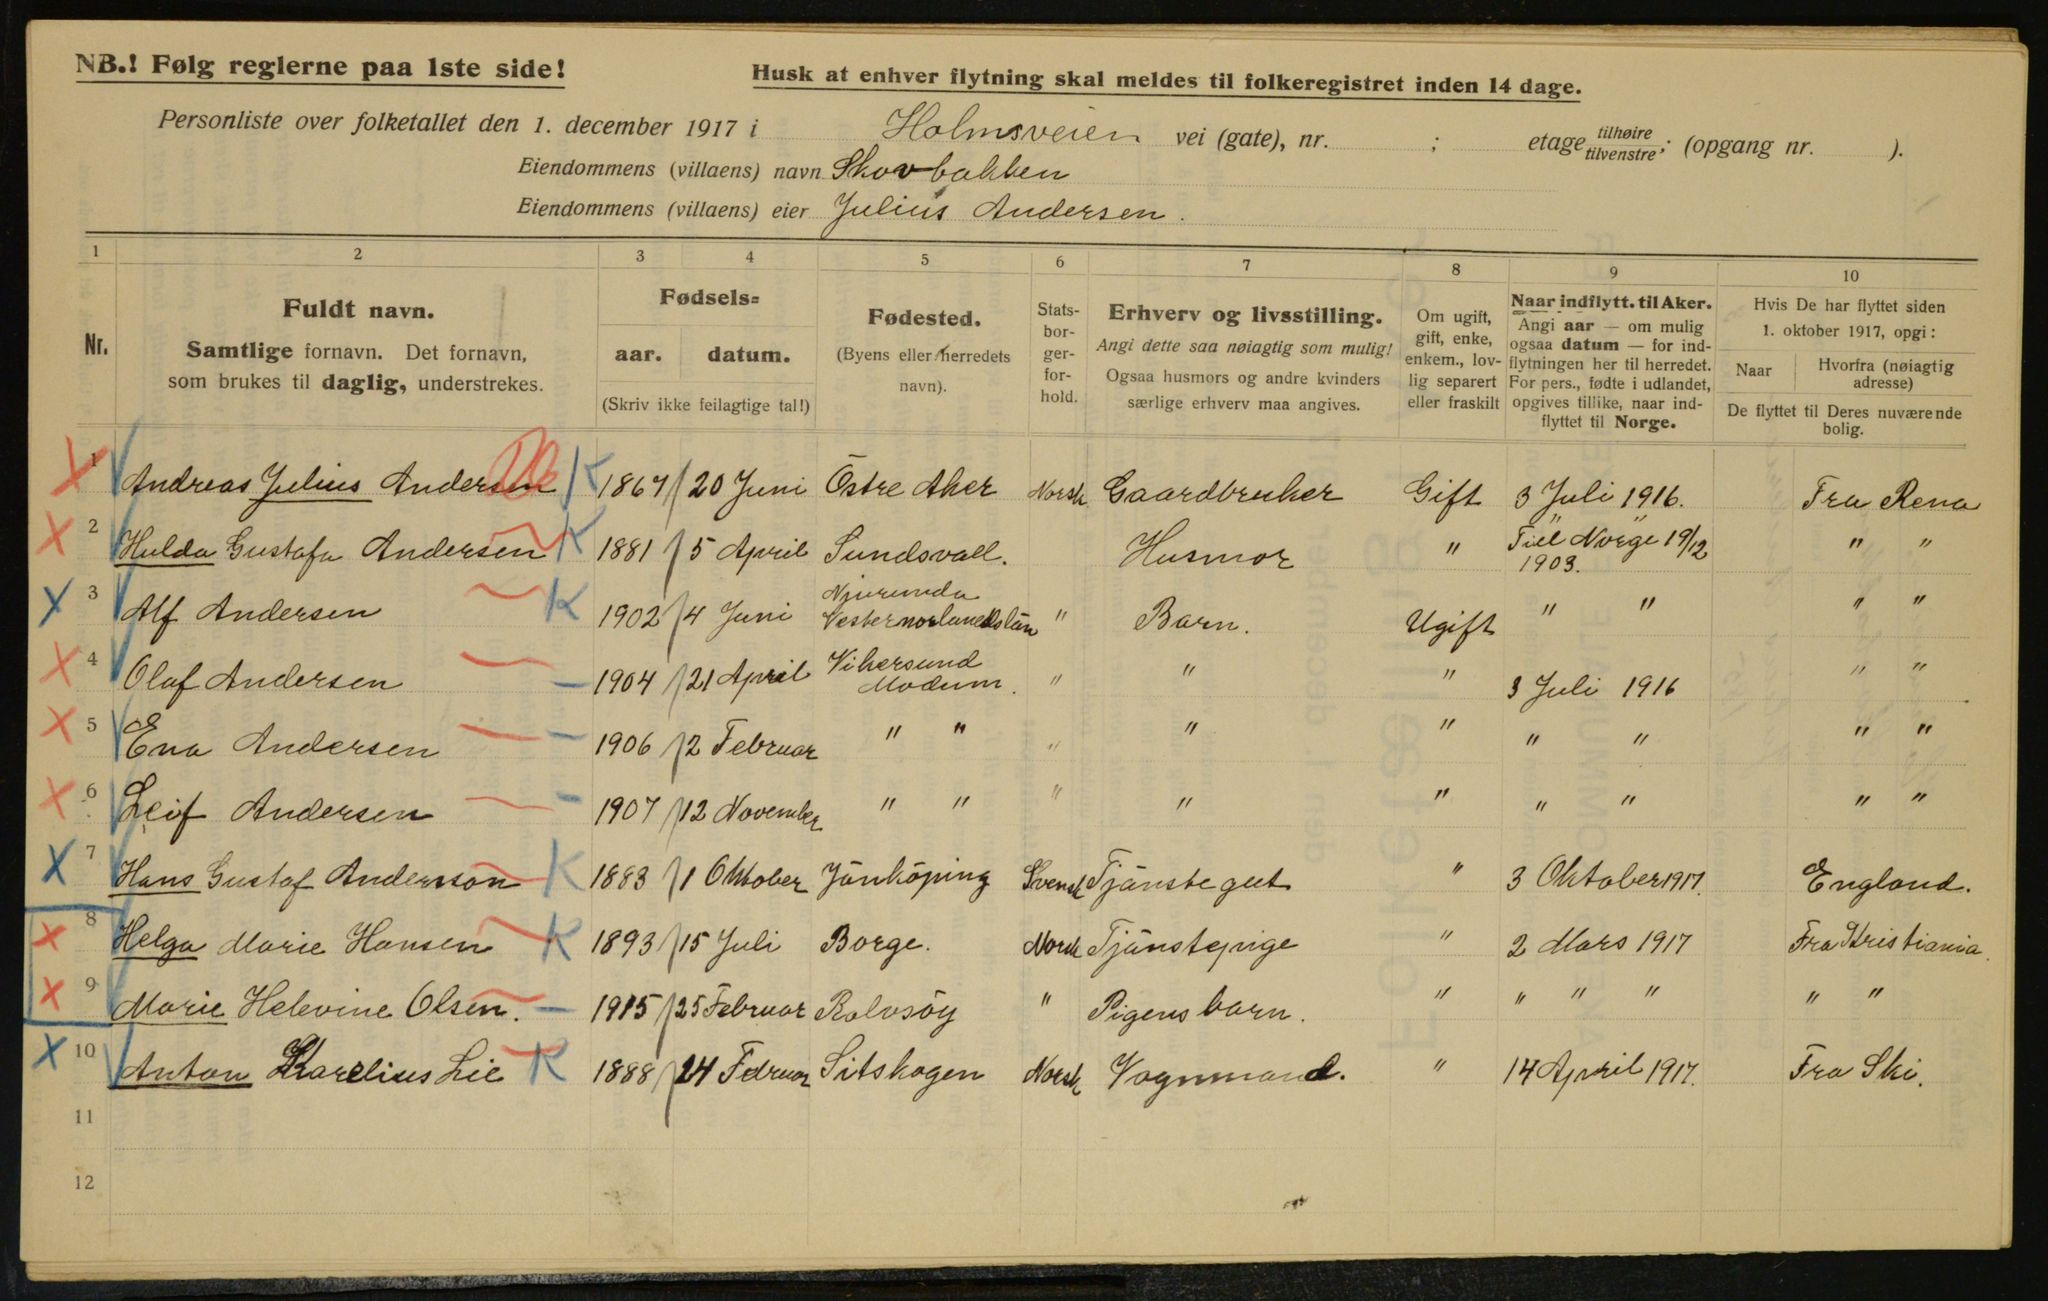 NB.! Følg reglerne paa 1ste side!
Husk at enhver flytning skal meldes til folkeregistret inden 14 dage.
Personliste over folketallet den 1. december 1917 i Holmsveien vei (gate), nr. ; etage tilhøire tilvenstre; (opgang nr. ).
Eiendommens (villaens) navn Skovbakken
Eiendommens (villaens) eier Julius Andersen.
1 2 3 4 5 6 7 8 9 10
Nr.
Fuldt navn.
Samtlige fornavn. Det fornavn,
som brukes til daglig, understrekes.
Fødsels=
aar. datum.
(Skriv ikke feilagtige tal!)
Fødested.
(Byens eller herredets
navn).
Stats-
bor-
ger-
for-
hold.
Erhverv og livsstilling.
Angi dette saa nøiagtig som mulig!
Ogsaa husmors og andre kvinders
særlige erhverv maa angives.
Om ugift,
gift, enke,
enkem., lov-
lig separert
eller fraskilt
Naar indflytt. til Aker.
Angi aar — om mulig
ogsaa datum — for ind-
flytningen her til herredet.
For pers., fødte i udlandet,
opgives tillike, naar ind-
flyttet til Norge.
Hvis De har flyttet siden
1. oktober 1917, opgi:
Naar
Hvorfra (nøiagtig
adresse)
De flyttet til Deres nuværende
bolig.
1 Andreas Julius Andersen K 1867 / 20 Juni Östre Aker Norsk Gaardbruker Gift 3 Juli 1916. Fra Rena
2 Hulda Gustafa Andersen K 1881 / 5 April Sundsvall. Husmor " Till Norge 19/12 1903. " "
3 Alf Andersen K 1902 / 4 Juni Njurunda Vesternorlandslän " Barn. Ugift " " " "
4 Olaf Andersen — 1904 / 21 April Vikersund Modum. " " " 3 Juli 1916 " "
5 Eva Andersen — 1906 / 2 Februar " " " " " " " " "
6 Leif Andersen — 1907 / 12 November " " " " " " " " "
7 Hans Gustaf Andersson K 1883 / 1 Oktober Jönköping Svensk Tjänstegut " 3 Oktober 1917. England.
8 Helga Marie Hansen K 1893 / 15 Juli Borge. Norsk Tjänstepige " 2 Mars 1917 Fra Kristiania.
9 Marie Helevine Olsen. — 1915 / 25 Februar Rolvsöy " Pigens barn. " " " " " "
10 Anton Karelius Lie K 1888 / 24 Februar Sitskogen Norsk Vognmand. " 14 April 1917. Fra Ski.
11
12